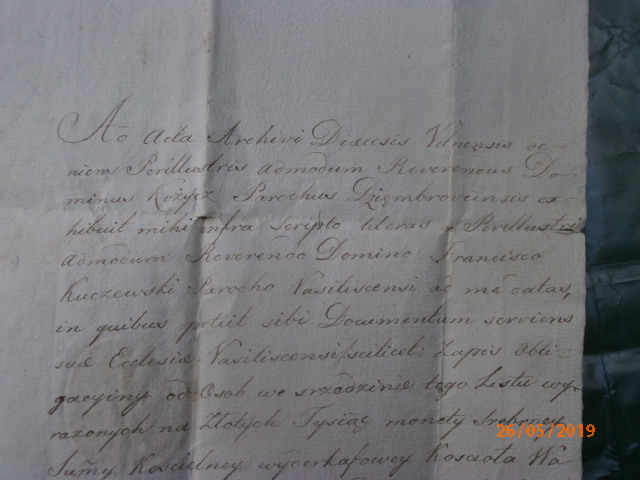 Ad Acta Archivi Diœcesis Vilnensis ve-
niens Perillustris admodum Reverendus Do-
minus Parochus Dzięmbroviensis ex-
hibuit mihi infra scripto literas a Perillustri
admodum Reverendo Domino Francisco
Kuczewski Parocho Vasiliscensi ad me datas,
in quibus petiit sibi Documentum serviens
suæ Ecclesiæ Vasiliscensi scilicet: Zapis Obli-
gacyiny od Osob we srzodzinie tego Listu wy-
rażonych na Złotych Tysiąc monety Srebrney
Sum̃y Kościelney Kościoła Wa
26/05/2019